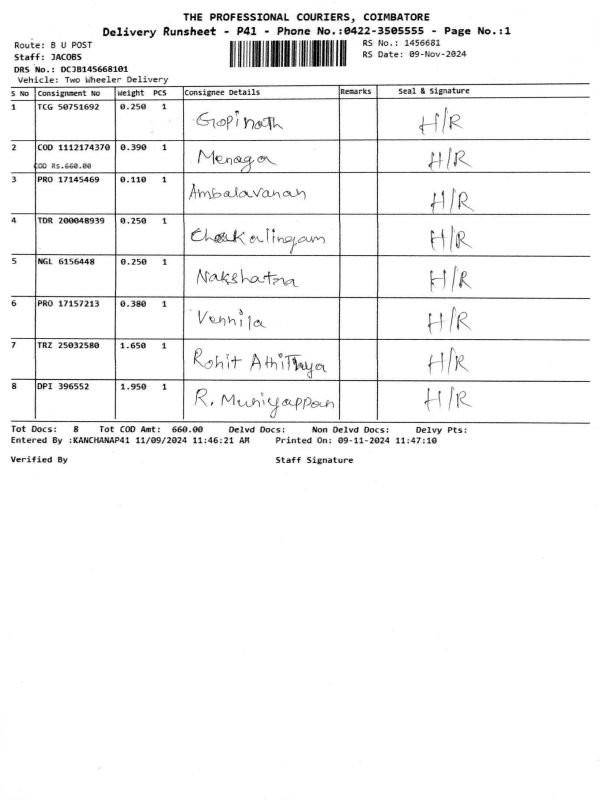 THE PROFESSIONAL COURIERS, COIMBATORE
Delivery Runsheet - P41 - Phone No.:0422-3505555 - Page No.:1
Route: B U POST
RS No.: 1456681
Staff: JACOBS
RS Date: 09-Nov-2024
DRS No.: DCJB145668101
Vehicle: Two Wheeler Delivery
S No Consignment No Weight PCS Consignee Details Remarks Seal & Signature
1 TCG 50751692 0.250 1 Gopinath H/R
2 COD 1112174370 0.390 1 Menaga H/R
COD Rs.660.00
3 PRO 17145469 0.110 1 Ambalavanan H/R
4 TDR 200048939 0.250 1 Chokalingam H/R
5 NGL 6156448 0.250 1 Nakshatra H/R
6 PRO 17157213 0.380 1 Vennila H/R
7 TRZ 25032580 1.650 1 Rohit Athithya H/R
8 DPI 396552 1.950 1 R. Muniyappan H/R
Tot Docs: 8 Tot COD Amt: 660.00 Delvd Docs: Non Delvd Docs: Delvy Pts:
Entered By :KANCHANAP41 11/09/2024 11:46:21 AM Printed On: 09-11-2024 11:47:10
Verified By Staff Signature